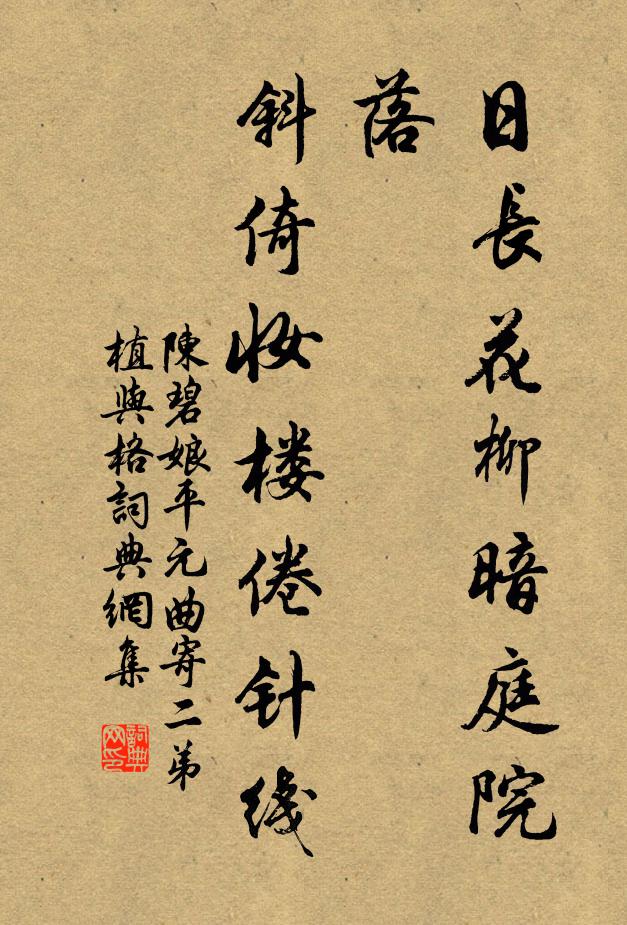 日長花柳暗庭院
落
斜倚妆楼倦针线
陳碧娘平元曲寄二弟
植與格詞典網集
詞典
网印